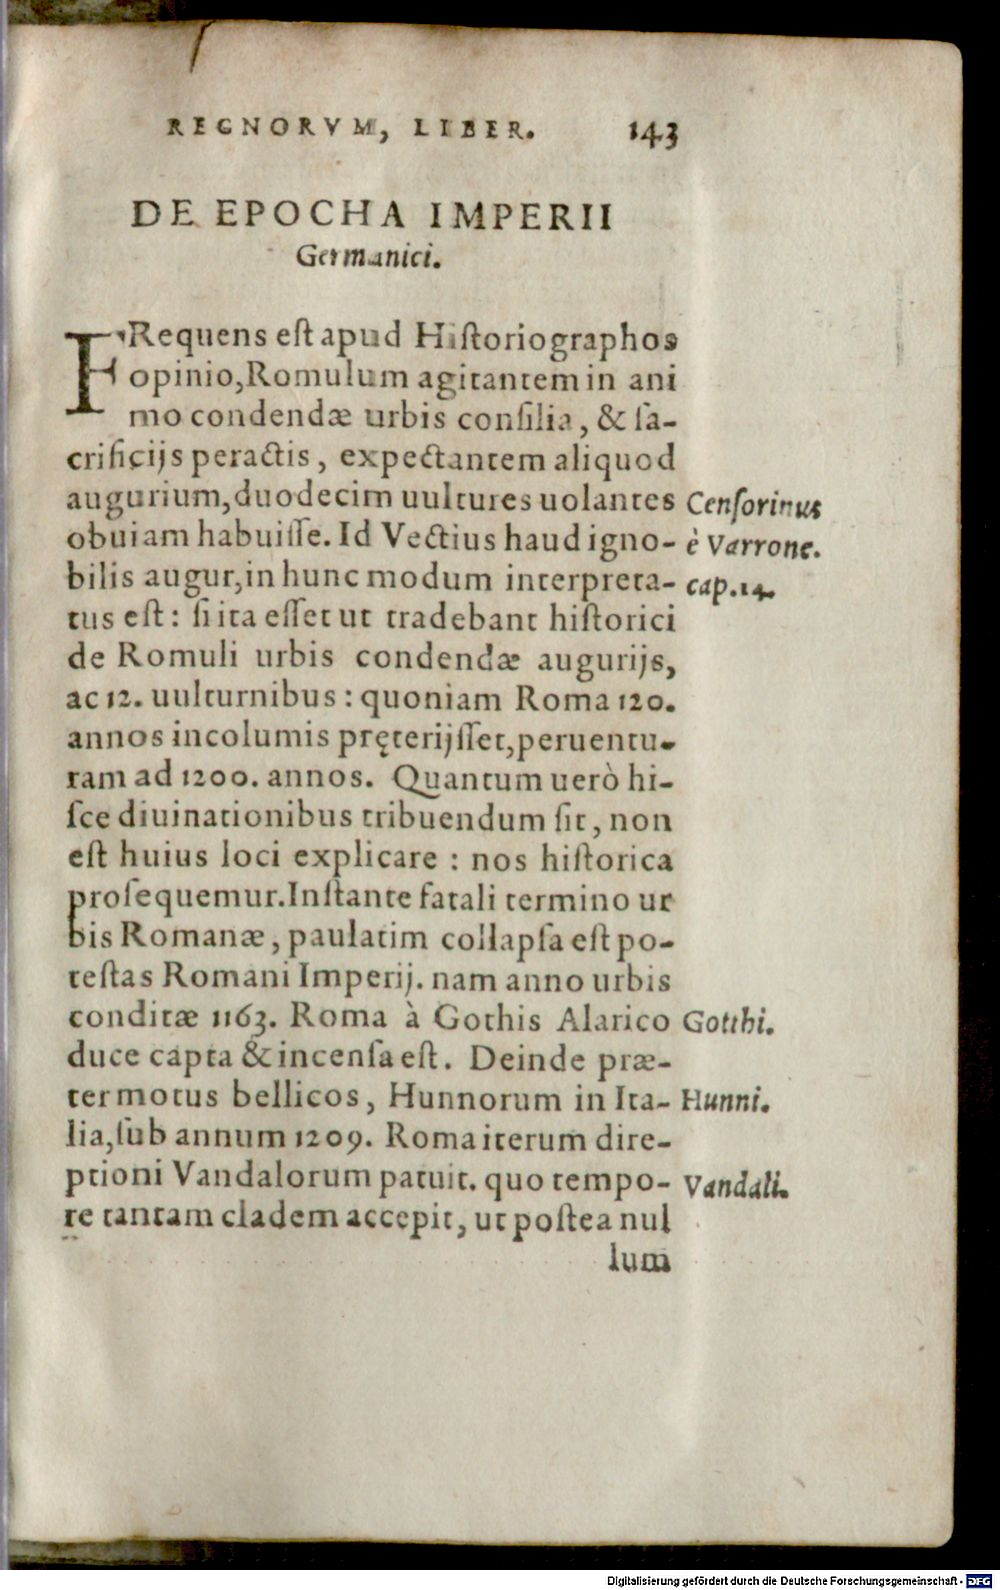 REGNORVM, LIBER. 143
DE EPOCHA IMPERII
Germanici.
FRequens est apud Historiographos
opinio, Romulum agitantem in ani
mo condendæ urbis consilia, & sa-
crificijs peractis, expectantem aliquod
augurium, duodecim uultures uolantes
Censorinus
obuiam habuisse. Id Vectius haud igno-
è Varrone.
bilis augur, in hunc modum interpreta-
cap. 14.
tus est: si ita esset ut tradebant historici
de Romuli urbis condendæ augurijs,
ac 12. uulturnibus: quoniam Roma 120.
annos incolumis pręterijsset, peruentu-
ram ad 1200. annos. Quantum uerò hi-
sce diuinationibus tribuendum sit, non
est huius loci explicare: nos historica
prosequemur. Instante fatali termino ur
bis Romanæ, paulatim collapsa est po-
testas Romani Imperij. nam anno urbis
conditæ 1163. Roma à Gothis Alarico
Gotthi.
duce capta & incensa est. Deinde præ-
ter motus bellicos, Hunnorum in Ita-
Hunni.
lia, sub annum 1209. Roma iterum dire-
ptioni Vandalorum patuit. quo tempo-
Vandali.
re tantam cladem accepit, ut postea nul
lum
Digitalisierung gefördert durch die Deutsche Forschungsgemeinschaft - DFG